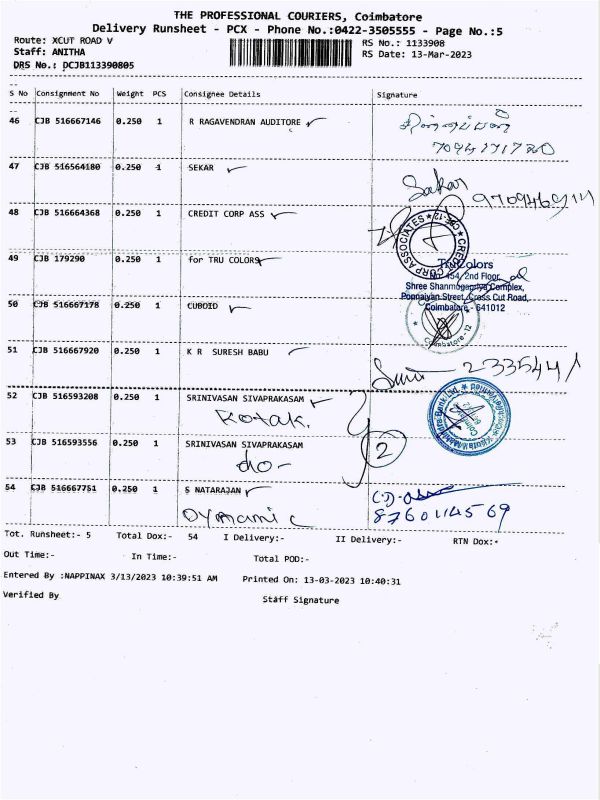 THE PROFESSIONAL COURIERS, Coimbatore
Delivery Runsheet - PCX - Phone No.:0422-3505555 - Page No.:5
Route: XCUT ROAD V RS No.: 1133908
Staff: ANITHA RS Date: 13-Mar-2023
DRS No.: DCJB113390805
S No Consignment No Weight PCS Consignee Details Signature
46 CJB 516667146 0.250 1 R RAGAVENDRAN AUDITORE
47 CJB 516564180 0.250 1 SEKAR
Sakar
48 CJB 516664368 0.250 1 CREDIT CORP ASS
CREDIT CORP ASSOCIATES ★ CBE-12 ★
49 CJB 179290 0.250 1 for TRU COLORS
TruColors
154, 2nd Floor,
Shree Shanmugapriya Complex,
Ponnaiyan Street, Cross Cut Road,
Coimbatore - 641012
50 CJB 516667178 0.250 1 CUBOID
Coimbatore - 12
51 CJB 516667920 0.250 1 K R SURESH BABU
2335441
52 CJB 516593208 0.250 1 SRINIVASAN SIVAPRAKASAM
Kotak.
Kotak Mahindra Bank Ltd.
53 CJB 516593556 0.250 1 SRINIVASAN SIVAPRAKASAM
do - 2
54 CJB 516667751 0.250 1 S NATARAJAN
Dynamic 8760114569
Tot. Runsheet:- 5 Total Dox:- 54 I Delivery:- II Delivery:- RTN Dox:-
Out Time:- In Time:- Total POD:-
Entered By :NAPPINAX 3/13/2023 10:39:51 AM Printed On: 13-03-2023 10:40:31
Verified By Staff Signature